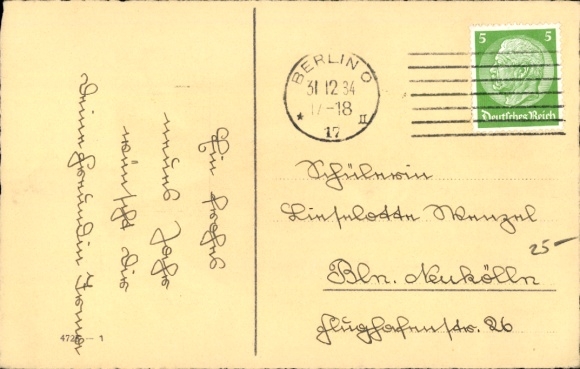 Ein frohes
neues Jahr
wünscht Dir
Deine Freundin Irma
BERLIN O
31 12 34
17-18
* II
17
5 5
Deutsches Reich
Schülerin
Lieselotte Wenzel
Bln. Neukölln
Flughafenstr. 26
25-
472 - 1